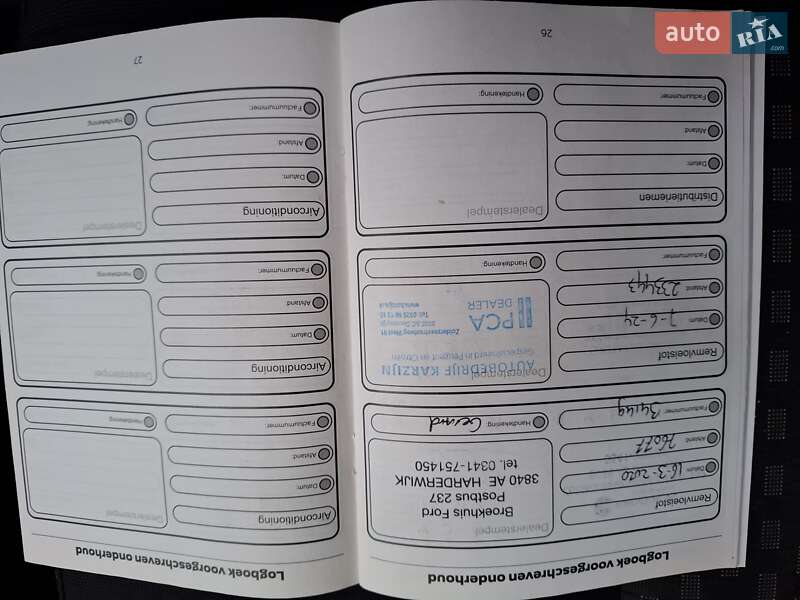 auto RIA.com
Logboek voorgeschreven onderhoud
Remvloeistof
Datum: 16-3-2020
Afstand: 26077
Factuurnummer:
Dealerstempel
Broekhuis Ford
Postbus 237
3840 AE HARDERWIJK
tel. 0341-751450
Handtekening:
Remvloeistof
Datum: 7-6-24
Afstand: 233443
Factuurnummer:
Dealerstempel
AUTOBEDRIJF KARZIJN
Gespecialiseerd in Peugeot en Citroën
PCA
DEALER
Handtekening:
Distributieriemen
Datum:
Afstand:
Factuurnummer:
Dealerstempel
Handtekening:
26
Logboek voorgeschreven onderhoud
Airconditioning
Datum:
Afstand:
Factuurnummer:
Dealerstempel
Handtekening:
Airconditioning
Datum:
Afstand:
Factuurnummer:
Dealerstempel
Handtekening:
Airconditioning
Datum:
Afstand:
Factuurnummer:
Dealerstempel
Handtekening:
27